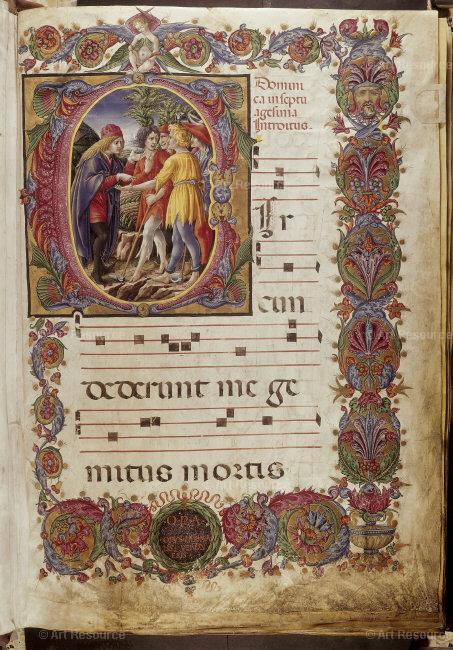 Domini
ca in septu
agesima
Introitus.
C ir
cun
dederunt me ge
mitus mortis
© Art Resource
© Art Resource